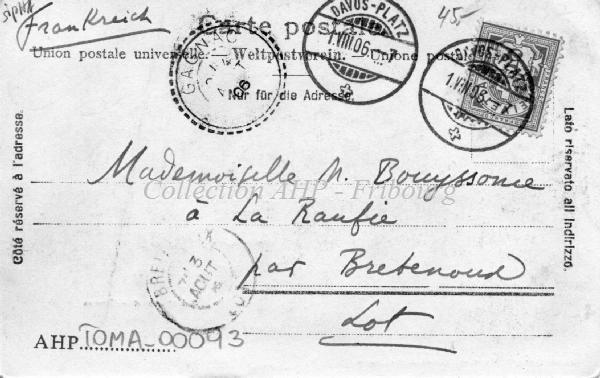 Frankreich
45.-
Carte postale.
Union postale universelle. — Weltpostverein. — Unione postale
Nur für die Adresse.
DAVOS-PLATZ
1.VIII.06
DAVOS-PLATZ
1.VIII.06
GA
06
Côté réservé à l'adresse.
Lato riservato all'indirizzo.
Mademoiselle M. Bouyssonie
Collection AHP - Fribourg
à La Raufie
par Bretenoux
Lot
BRET
3
AOUT
AHP TOMA-00093